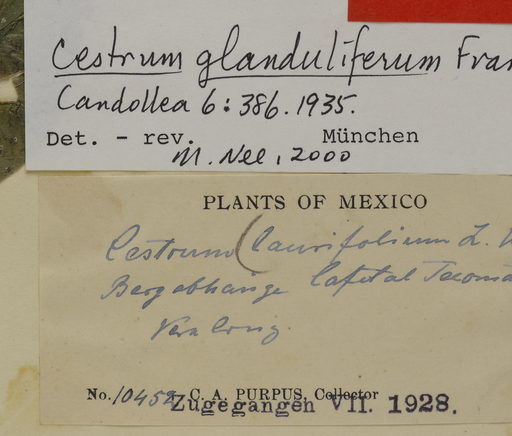 Cestrum glanduliferum Fran
Candollea 6: 386. 1935.
Det. - rev. München
M. Nee, 2000
PLANTS OF MEXICO
Cestrum (laurifolium L.
Bergabhänge Cafetal
Vera Cruz.
No. 10452 C. A. PURPUS, Collector
Zugegangen VII. 1928.